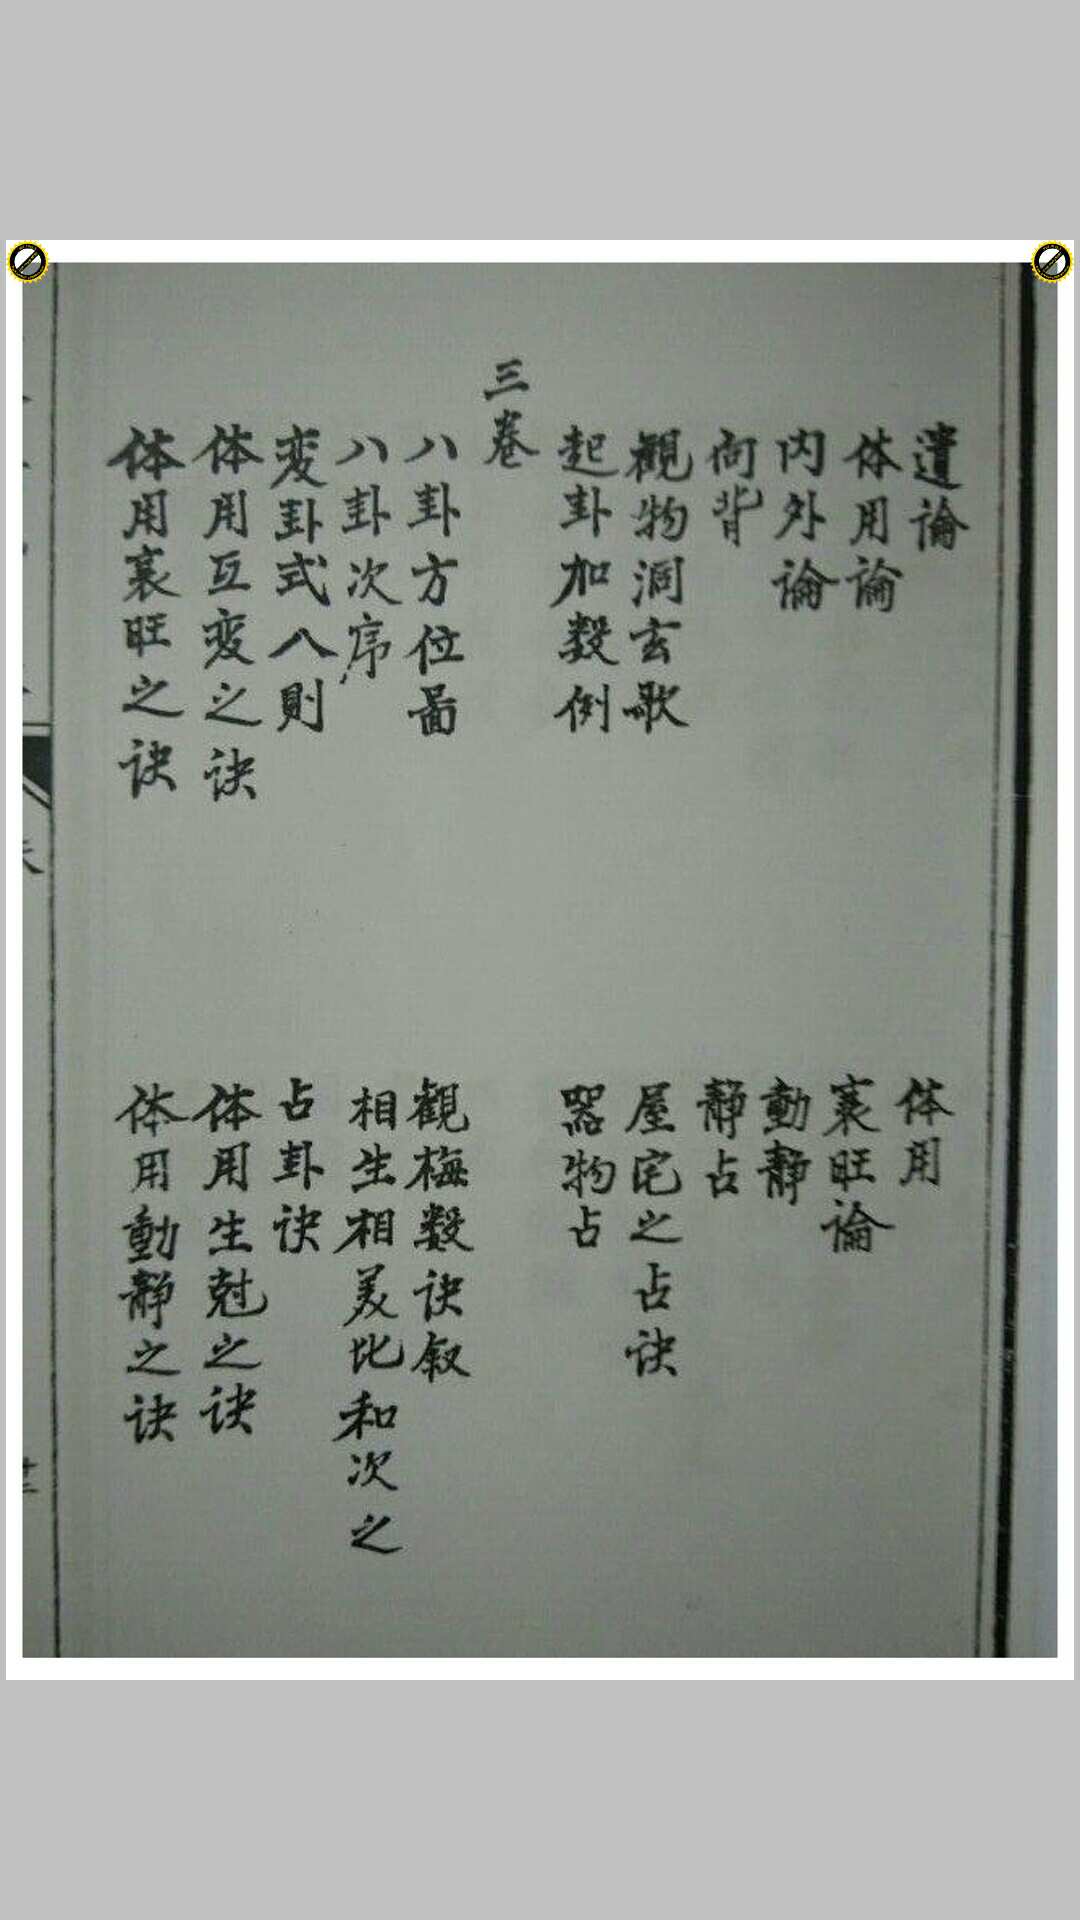 遺論
体用
体用論
衰旺論
内外論
動静
向背
静占
觀物洞玄歌
屋宅之占诀
起卦加数例
器物占
三卷
八卦方位畵
觀梅数诀叙
八卦次序
相生相美比和次之
变卦式八則
占卦诀
体用互变之诀
体用生尅之诀
体用衰旺之诀
体用動静之诀